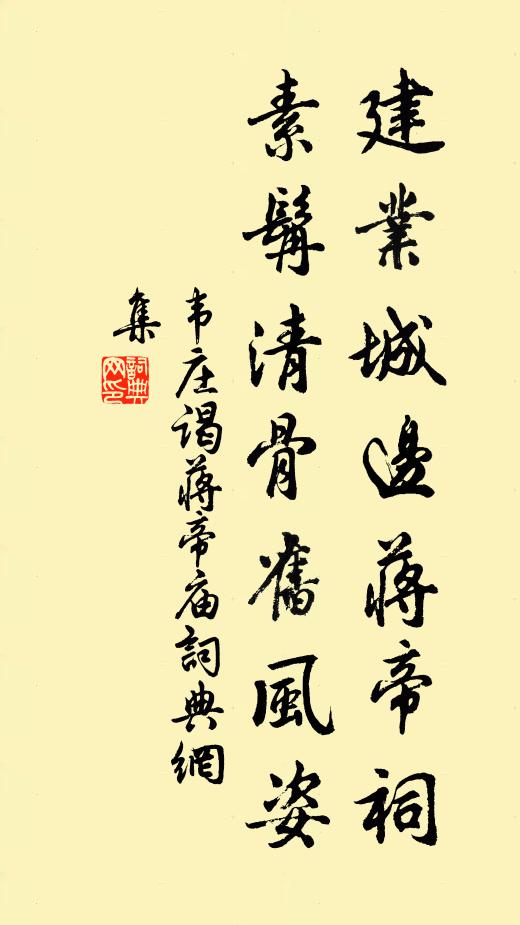 建業城邊蔣帝祠
素髯清骨舊風姿
韦庄謁蔣帝庙詞典網
集
詞典
网印